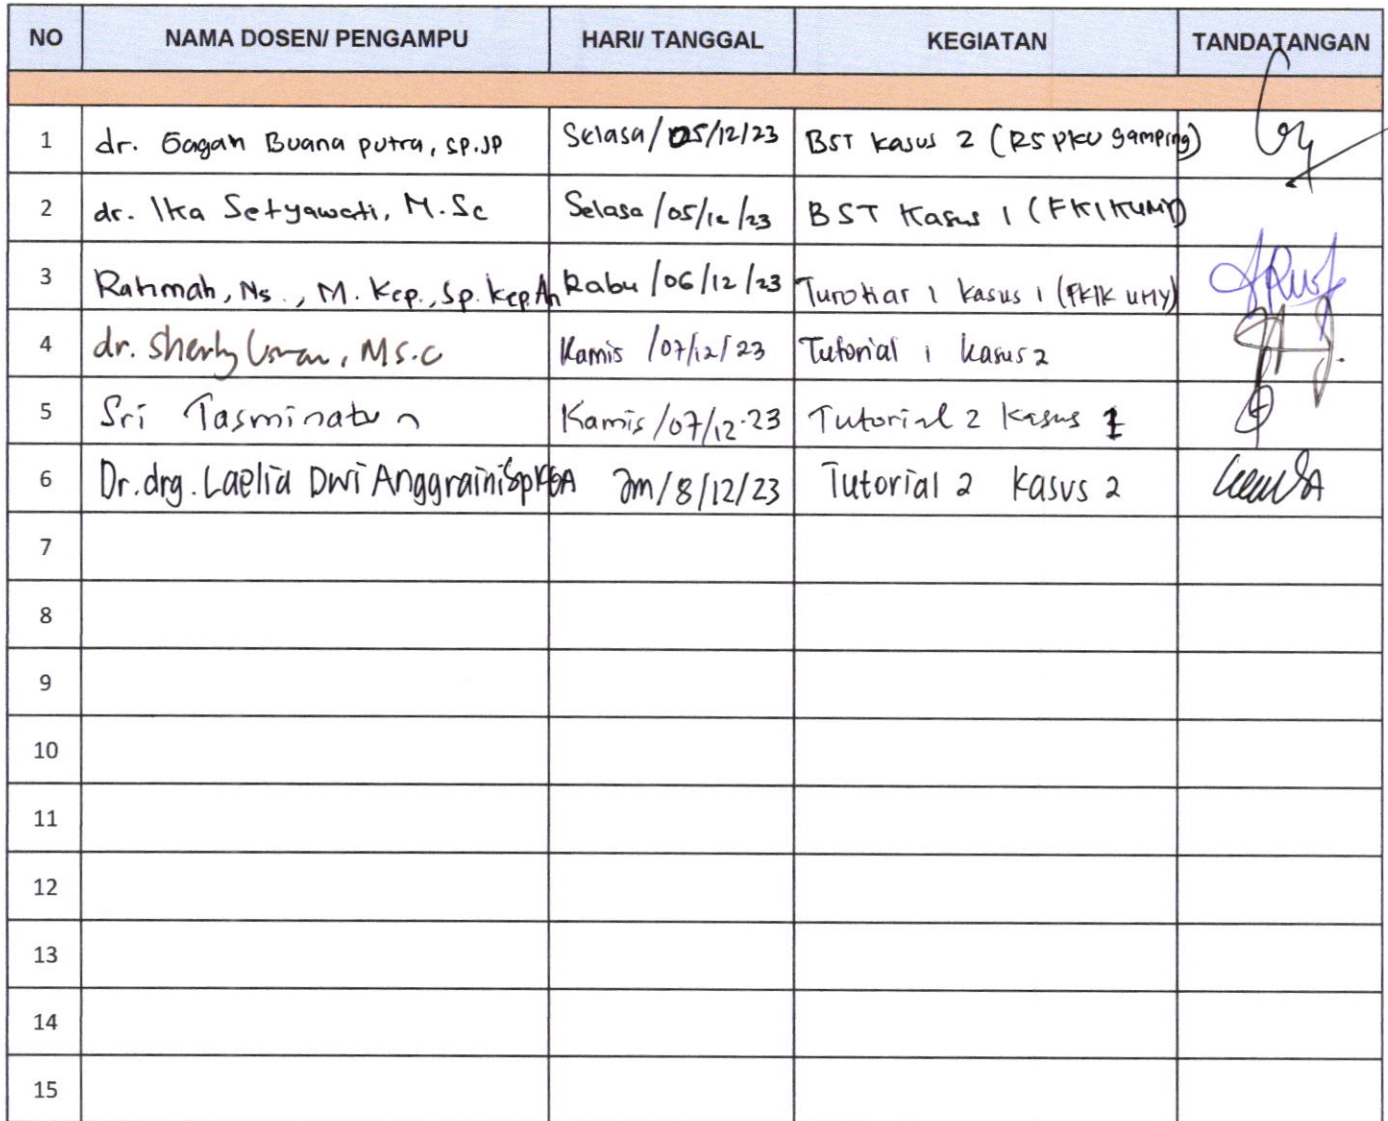 NO NAMA DOSEN/ PENGAMPU HARI/ TANGGAL KEGIATAN TANDATANGAN
1 dr. Gagah Buana putra, Sp.JP Selasa/ 05/12/23 BST kasus 2 (RS PKU gamping)
2 dr. Ika Setyawati, M.Sc Selasa /05/12/23 BST Kasus 1 (FKIKUMY)
3 Rahmah, Ns., M.Kep., Sp.kep.An Rabu /06/12/23 1 kasus 1 (FKIK UMY)
4 dr. Sherly Usman, MS.C Kamis /07/12/23 Tutorial 1 kasus 2
5 Sri Tasminatun Kamis /07/12.23 Tutorial 2 Kasus 1
6 Dr.drg. Laelia Dwi Anggraini SpKGA /8/12/23 Tutorial 2 Kasus 2
7
8
9
10
11
12
13
14
15